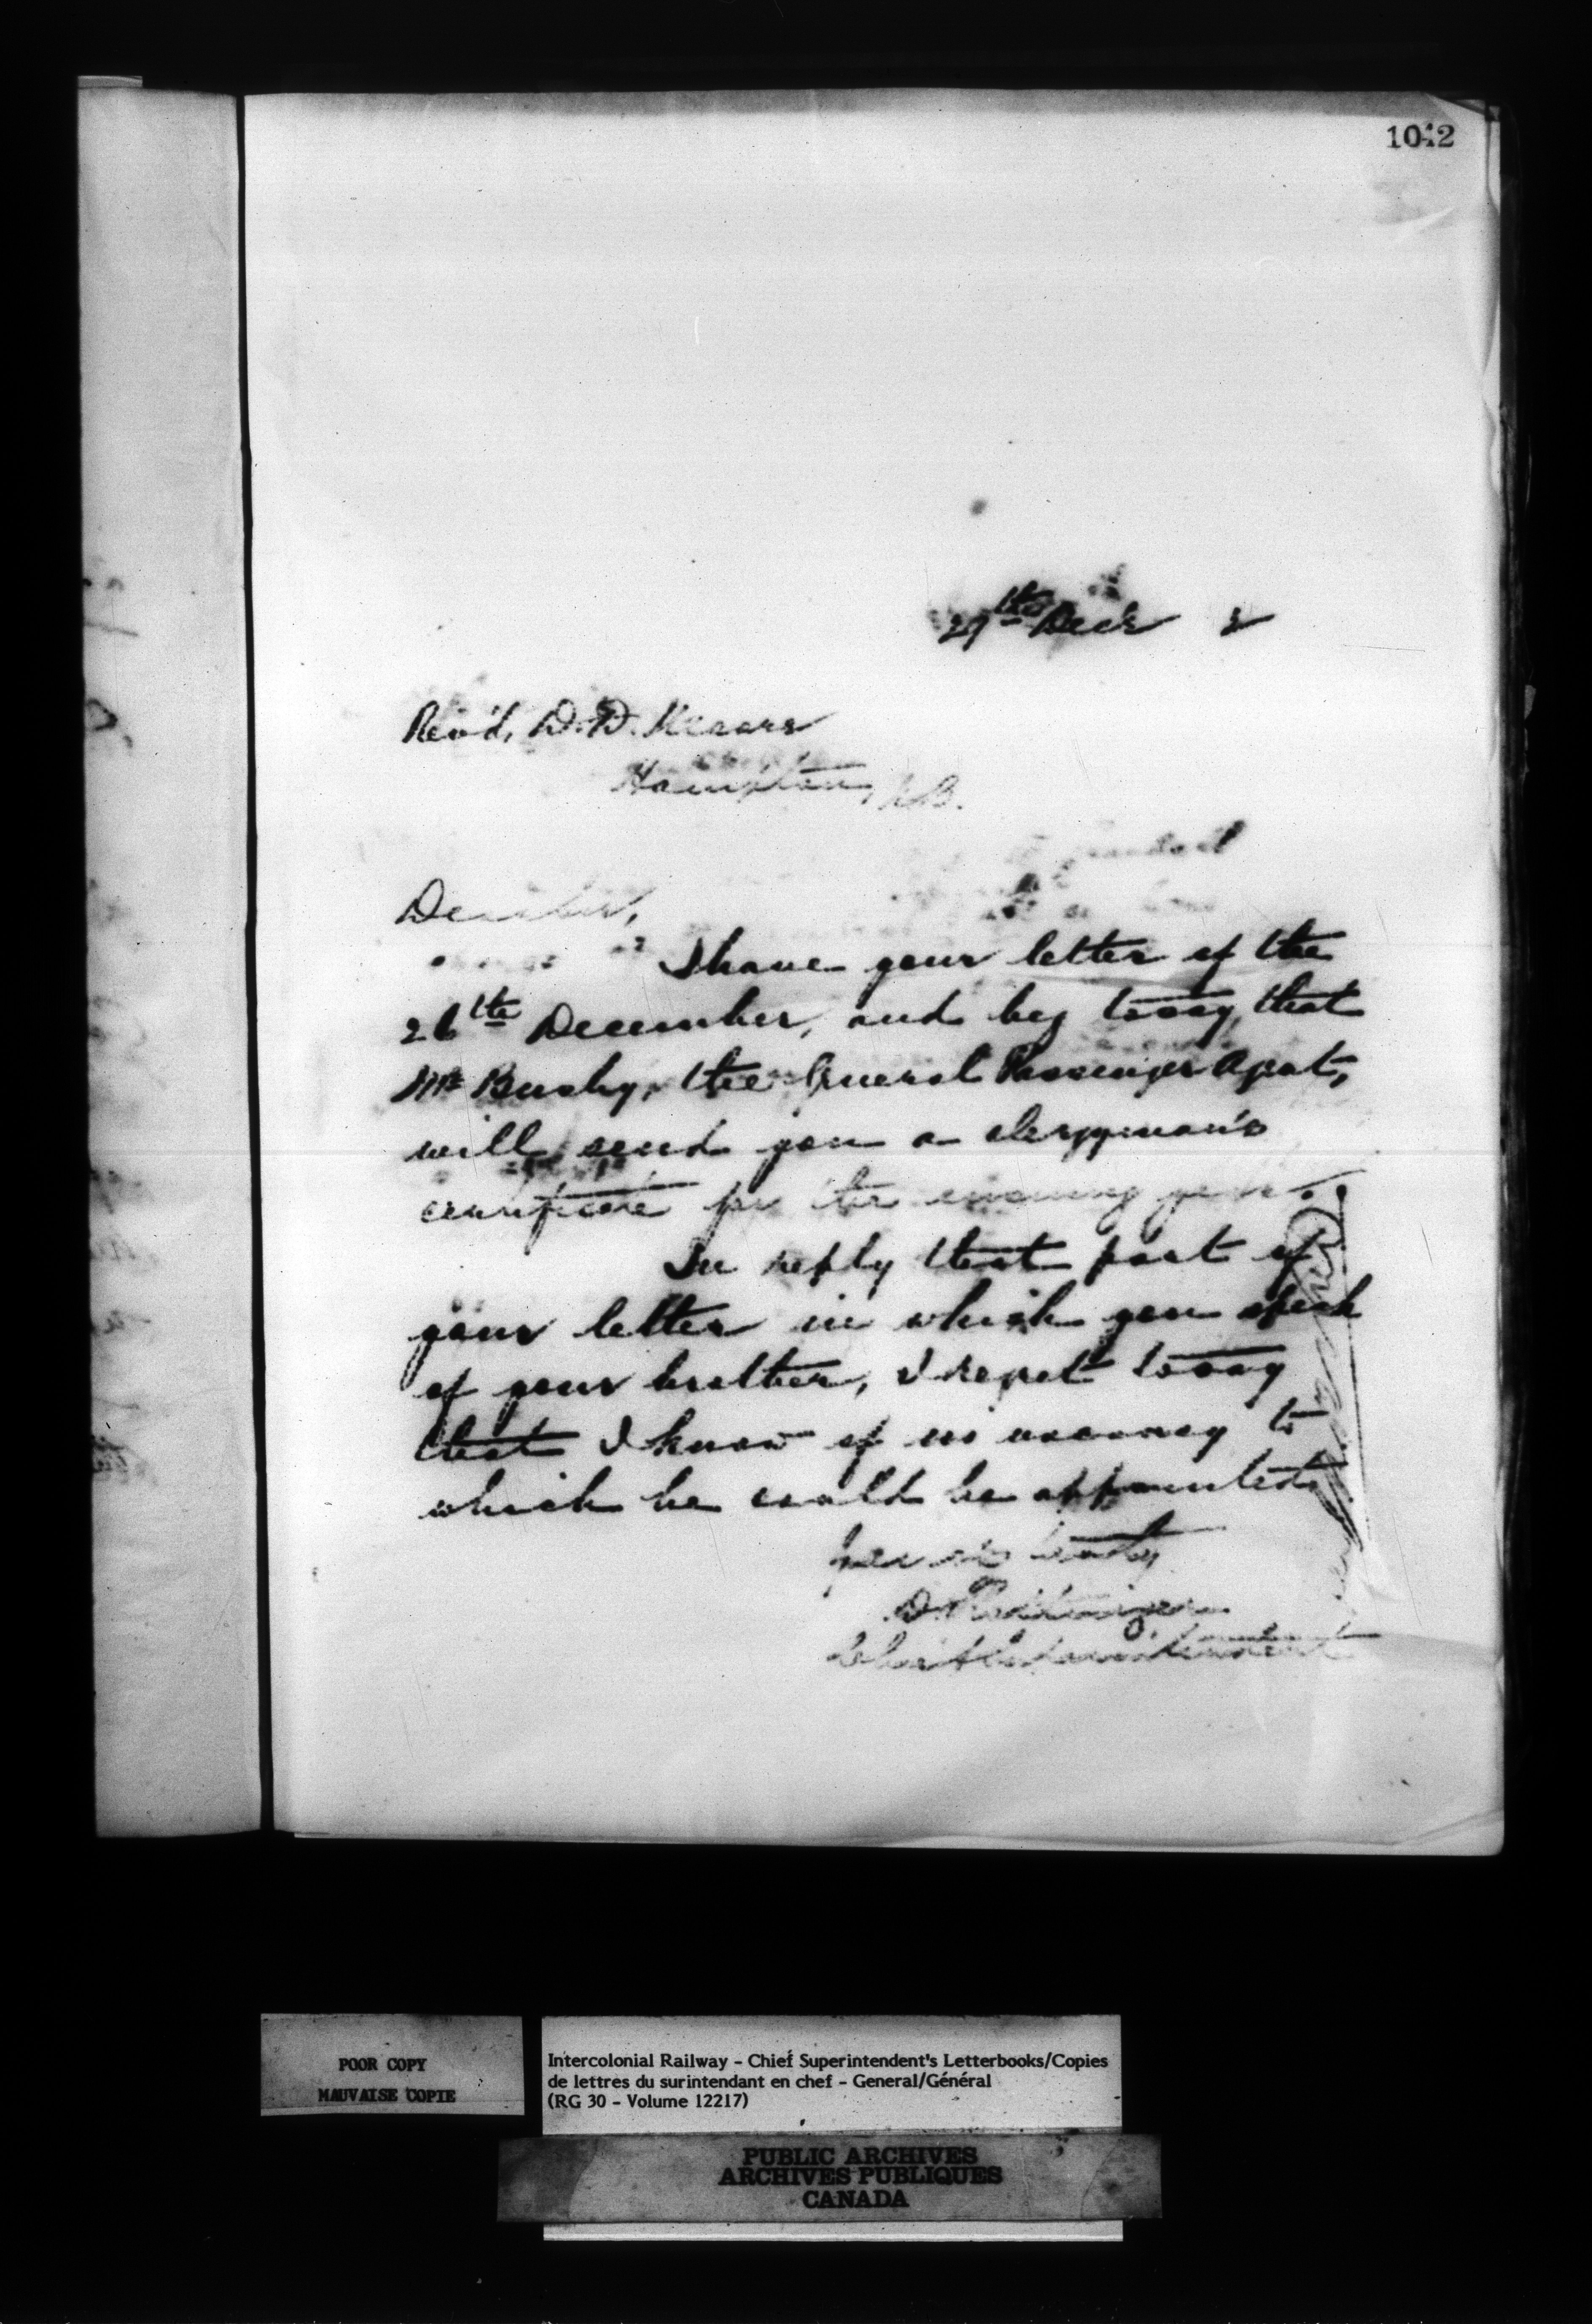 1042
27th Decr 2
Rev'd, D. D.
Hampton, N.B.
Dear Sir,
I have your letter of the
26th December, and beg to say that
Mr Busby, the General Passenger Agent,
will send you a clergyman's
certificate for the ensuing year.
In reply that part of
your letter in which you speak
of your brother, I regret to say
that I know of no vacancy to
which he could be appointed.
Yours truly
D. Pottinger
Chief Superintendent
POOR COPY
MAUVAISE COPIE
Intercolonial Railway - Chief Superintendent's Letterbooks/Copies
de lettres du surintendant en chef - General/Général
(RG 30 - Volume 12217)
PUBLIC ARCHIVES
ARCHIVES PUBLIQUES
CANADA